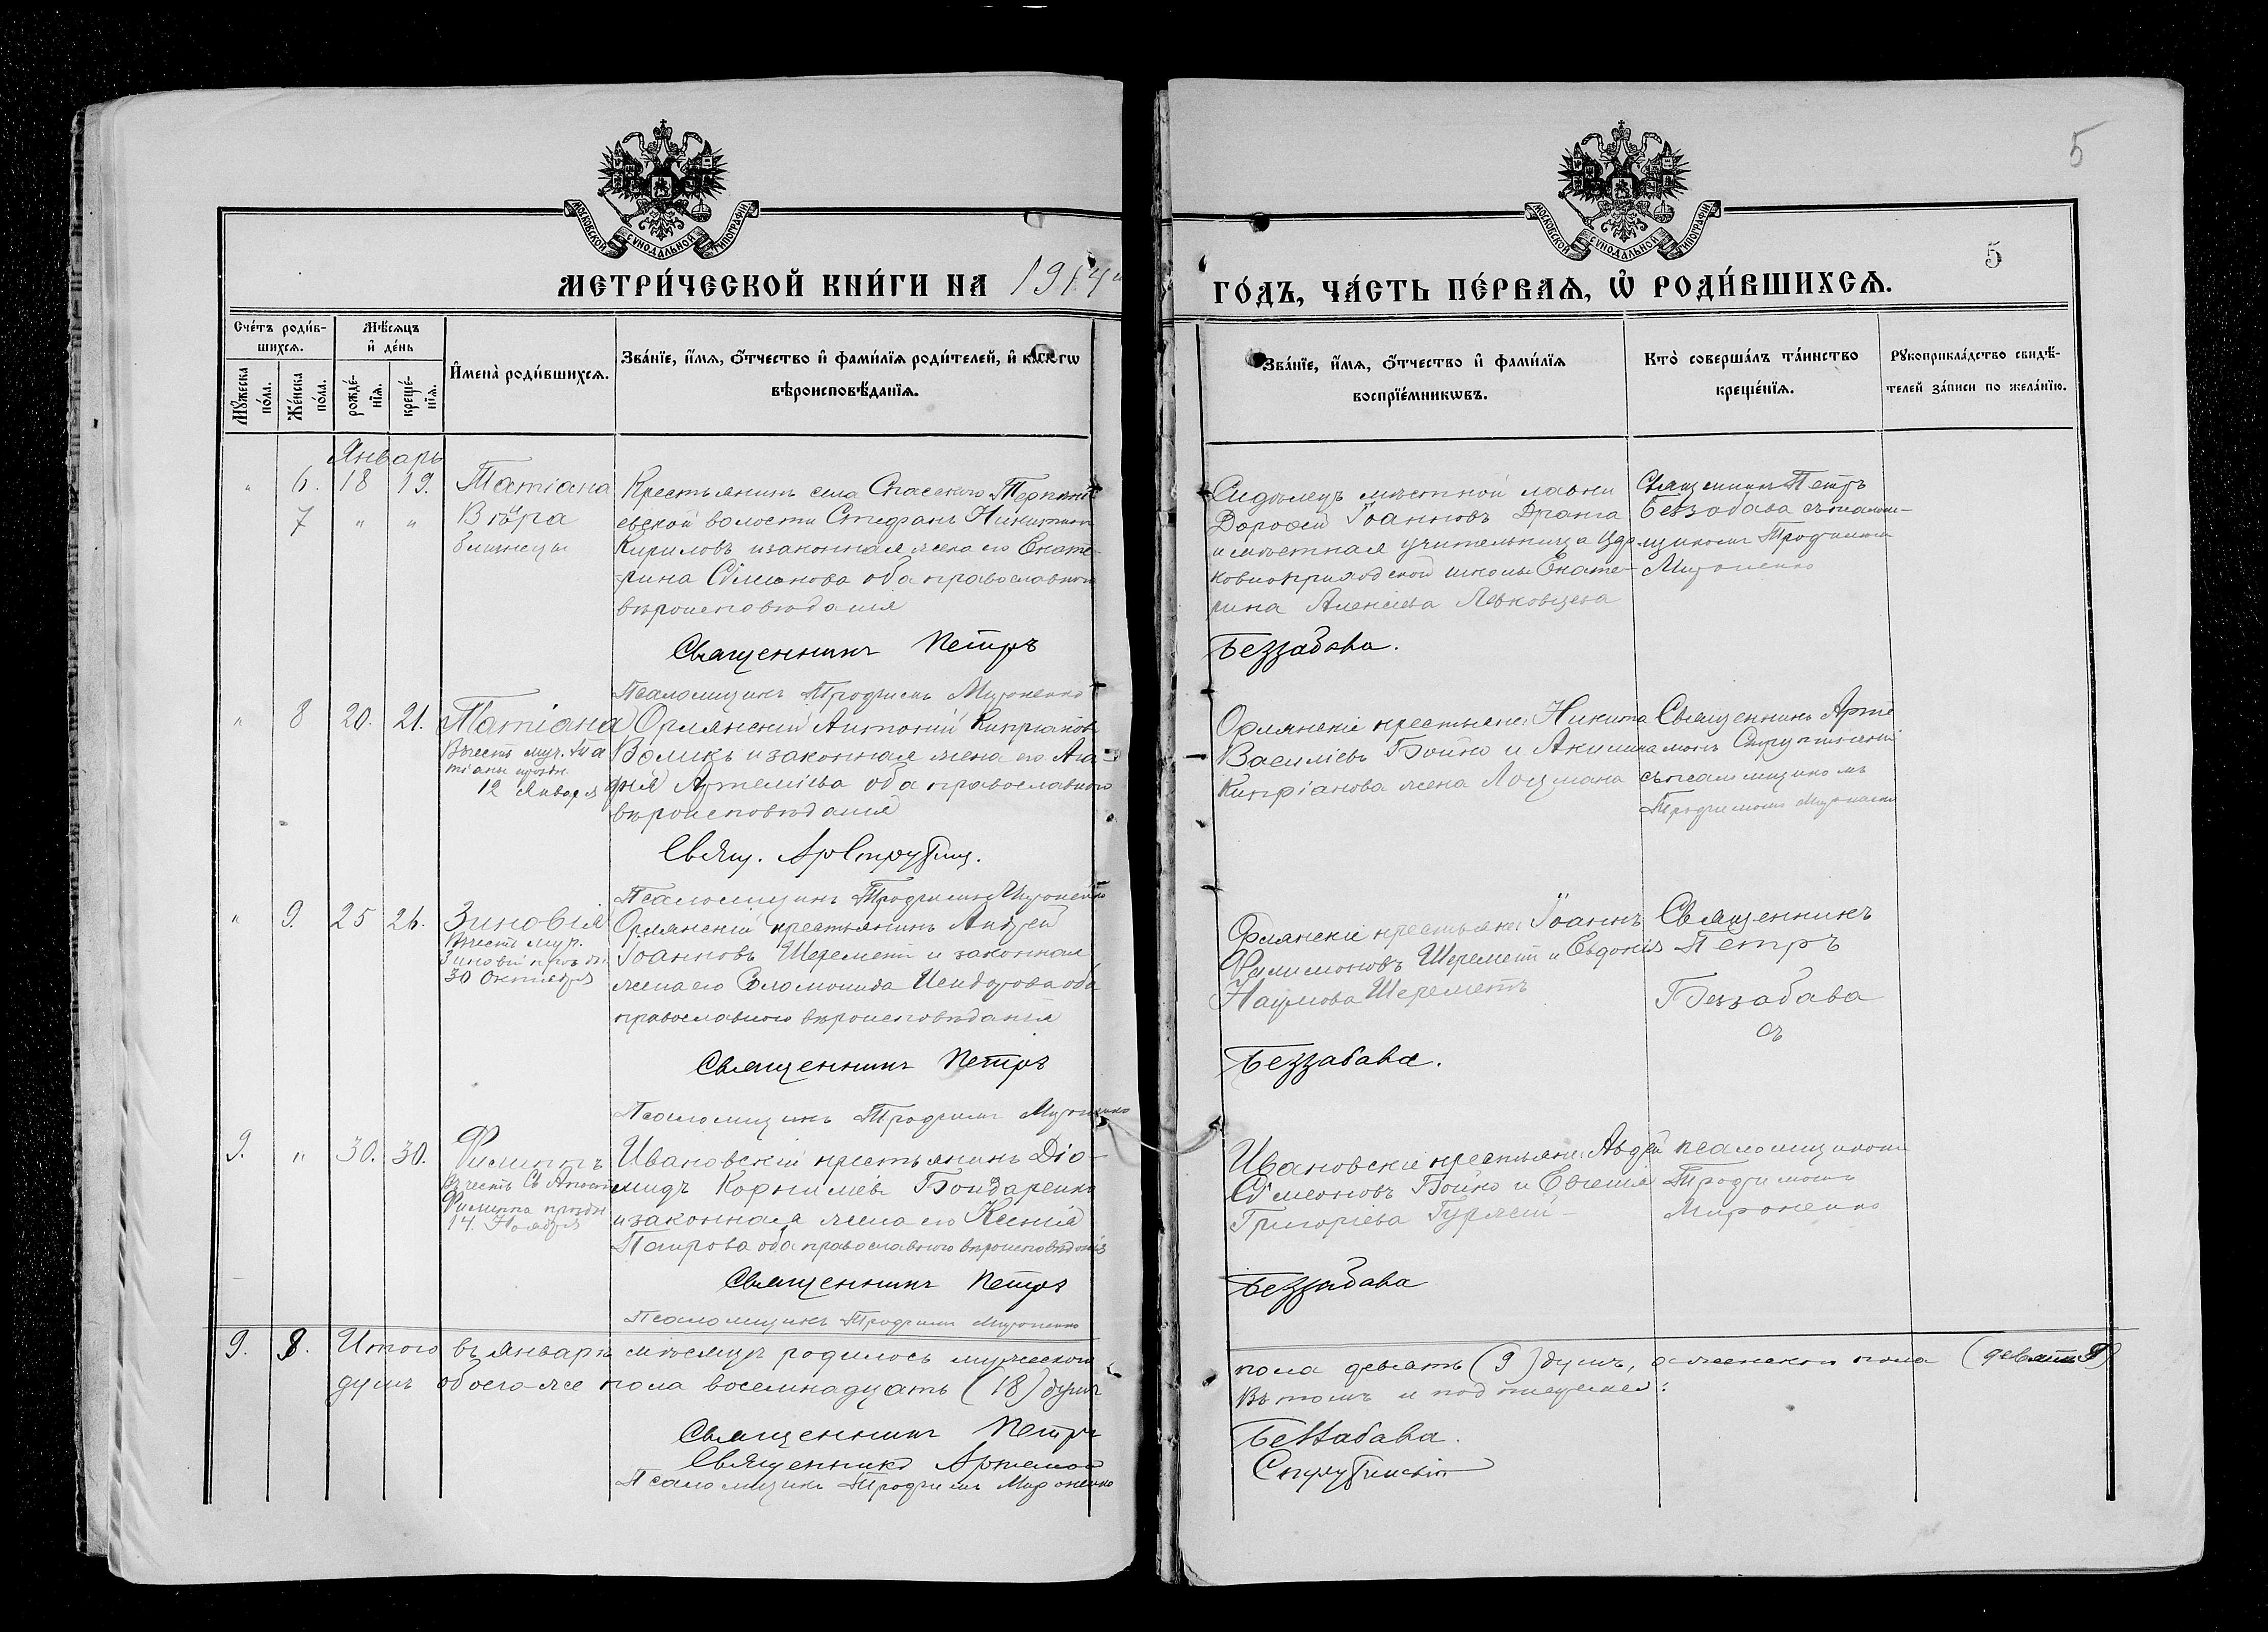 5
МОСКОВСКОЙ СѴНОДАЛЬНОЙ ТИПОГРАФІИ
МОСКОВСКОЙ СѴНОДАЛЬНОЙ ТИПОГРАФІИ
5
МЕТРИ́ЧЕСКОЙ КНИ́ГИ НА 1914й
ГО́ДЪ, ЧА́СТЬ ПЕ́РВАѦ, Ѡ҆ РОДИ́ВШИХСѦ.
Сче́тъ роди́в-
шихсѧ.
Мꙋ́жеска по́ла.
Же́нска по́ла.
Мѣ́сѧцъ
и҆ де́нь
рожде́-
нїѧ.
креще́-
нїѧ.
И҆мена̀ роди́вшихсѧ.
Зва́нїе, и҆́мѧ, ѻ҆́тчество и҆ фами́лїѧ роди́телей, и҆ каќгѡ
вѣроисповѣ́данїѧ.
Зва́нїе, и҆́мѧ, ѻ҆́тчество и҆ фами́лїѧ
воспрїе́мникѡвъ.
Кто̀ соверша́лъ та́инство
креще́нїѧ.
Рꙋкоприкла́дство свидѣ́-
телей за́писи по жела́нїю.
Январь
" 6. 18 19. Татіана
7 " " Вѣра
близнецы
Крестьянинъ села Спасского Терпѣнь
евской волости Стефанъ Никитинъ
Кириловъ и законная жена его Екате-
рина Сѵмонова оба православного
вѣроисповѣданія
Священникъ Петръ
Псаломщикъ Трофимъ Мироненко
Сиделецъ мѣстной лавки
Дорофей Іоанновъ Дранга
и мѣстная учительница Цер-
ковно приходской школы Екате-
рина Алексіева Левковцева
Беззабава.
Священникъ Петръ
Беззабава съ псалом-
щикомъ Трофимом
Мироненко
" 8 20. 21. Татіана
Въ честь муч. Та
тіаны праздн.
12 Января
Орлянскій Антоній Кипріановъ
Воликъ и законная жена его Ага-
фія Артеміева оба православного
вѣроисповѣданія
Свящ. Ар Струтин.
Псаломщикъ Трофимъ Мироненко
Орлянскіе крестьяне: Никита
Василіевъ Бойко и Акилина
Кипріанова жена Лоцмана
Священникъ Арте
монъ Струтинскій
съ псаломщикомъ
Трофимомъ Мироненко
" 9. 25 26. Зиновія
Въ честь муч.
Зиновіи празд.
30 Октября
Орлянскій крестьянинъ Андрей
Іоанновъ Шереметъ и законная
жена его Соломонида Исидорова оба
православного вѣроисповѣданія
Священникъ Петръ
Псаломщикъ Трофимъ Мироненко
Орлянскіе крестьяне: Іоаннъ
Филимоновъ Шереметъ и Евдокія
Наумова Шереметъ
Беззабава.
Священникъ
Петръ
Беззабава
съ
9. " 30. 30. Филиппъ
Въ честь Св Апост
Филиппа праздн
14. Ноября
Ивановскій крестьянинъ Діо-
мидъ Корниліевъ Бондаренко
и законная жена его Ксенія
Паирова оба православного вѣроисповѣданія
Священникъ Петръ
Псаломщикъ Трофимъ Мироненко
Ивановскіе крестьяне: Авдей
Сѵмеоновъ Бойко и Евгенія
Григоріева Гуржій
Беззабава
псаломщикомъ
Трофимомъ
Мироненко
9. 9. Итого въ январѣ мѣсяцѣ родилось мужескаго
пола девять (9) душъ, а женского пола (девять 9)
душъ обоего-же пола восемнадцать (18) душъ
Въ томъ и подписуемся:
Священникъ Петръ
Беззабава.
Священникъ Артемонъ
Струтинскій
Псаломщикъ Трофимъ Мироненко